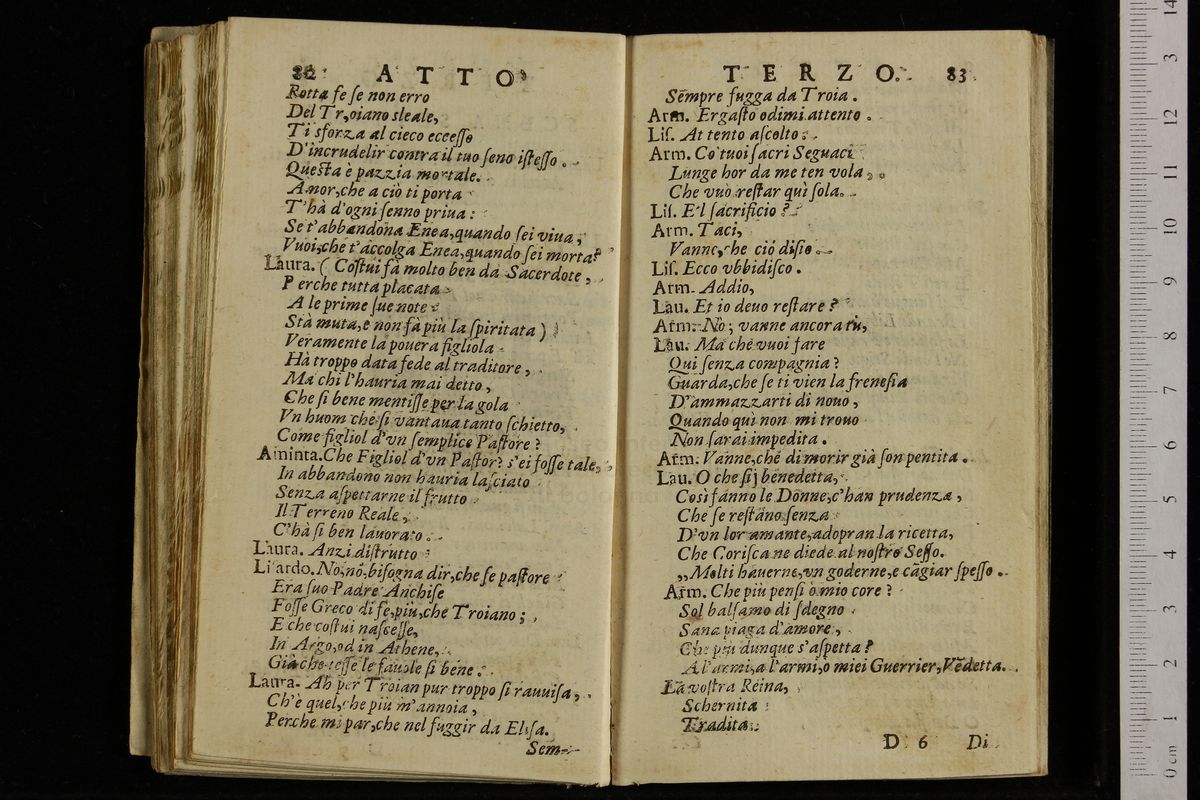 82 ATTO
Rotta fe se non erro
Del Tr,oiano sleale,
Ti sforza al cieco eccesso
D'incrudelir contra il tuo seno istesso.
Questa è pazzia mortale.
Amor,che a ciò ti porta
T'hà d'ogni senno priua:
Se t'abbandona Enea,quando sei viua,
Vuoi,che t'accolga Enea,quando sei morta?
Laura. ( Costui fà molto ben da Sacerdote,
Perche tutta placata
A le prime sue note
Stà muta,e non fà più la spiritata )
Veramente la pouera figliola
Hà troppo data fede al traditore,
Ma chi l'hauria mai detto,
Che si bene mentisse per la gola
Vn huom che si vantaua tanto schietto,
Come figliol d'vn semplice Pastore?
Aminta.Che Figliol d'vn Pastor? s'ei fosse tale,
In abbandono non hauria lasciato
Senza aspettarne il frutto
Il Terreno Reale,
C'hà si ben lauorato.
Laura. Anzi distrutto
Li ardo. No,nò,bisogna dir,che se pastore
Era suo Padre Anchise
Fosse Greco di fe,più,che Troiano;
E che costui nascesse,
In Argo,od in Athene,
Già che tesse le fauole si bene.
Laura. Ah per Troian pur troppo si rauuisa,
Ch'è quel,che più m'annoia,
Perche mi par,che nel fuggir da Elisa.
Sem-
TERZO. 83
Sempre fugga da Troia.
Arm. Ergasto odimi attento.
Lis. At tento ascolto.
Arm. Co'tuoi sacri Seguaci
Lunge hor da me ten vola,
Che vuò restar quì sola.
Lis. E'l sacrificio?
Arm. Taci,
Vanne,che ciò disio
Lis. Ecco vbbidisco.
Arm. Addio,
Lau. Et io deuo restare?
Arm. No; vanne ancora tù,
Lau. Ma che vuoi fare
Qui senza compagnia?
Guarda,che se ti vien la frenesia
D'ammazzarti di nouo,
Quando quì non mi trouo
Non sarai impedita.
Arm. Vanne,che di morir già son pentita.
Lau. O che sij benedetta,
Così fanno le Donne,c'han prudenza,
Che se restano senza
D'vn lor amante,adopran la ricetta,
Che Corisca ne diede al nostro Sesso.
„Molti hauerne,vn goderne,e cãgiar spesso.
Arm. Che più pensi ò mio core?
Sol balsamo di sdegno
Sana piaga d'amore,
Che più dunque s'aspetta?
A l'armi,a l'armi,o miei Guerrier,Vẽdetta.
La vostra Reina,
Schernita
Tradita
D 6 Di